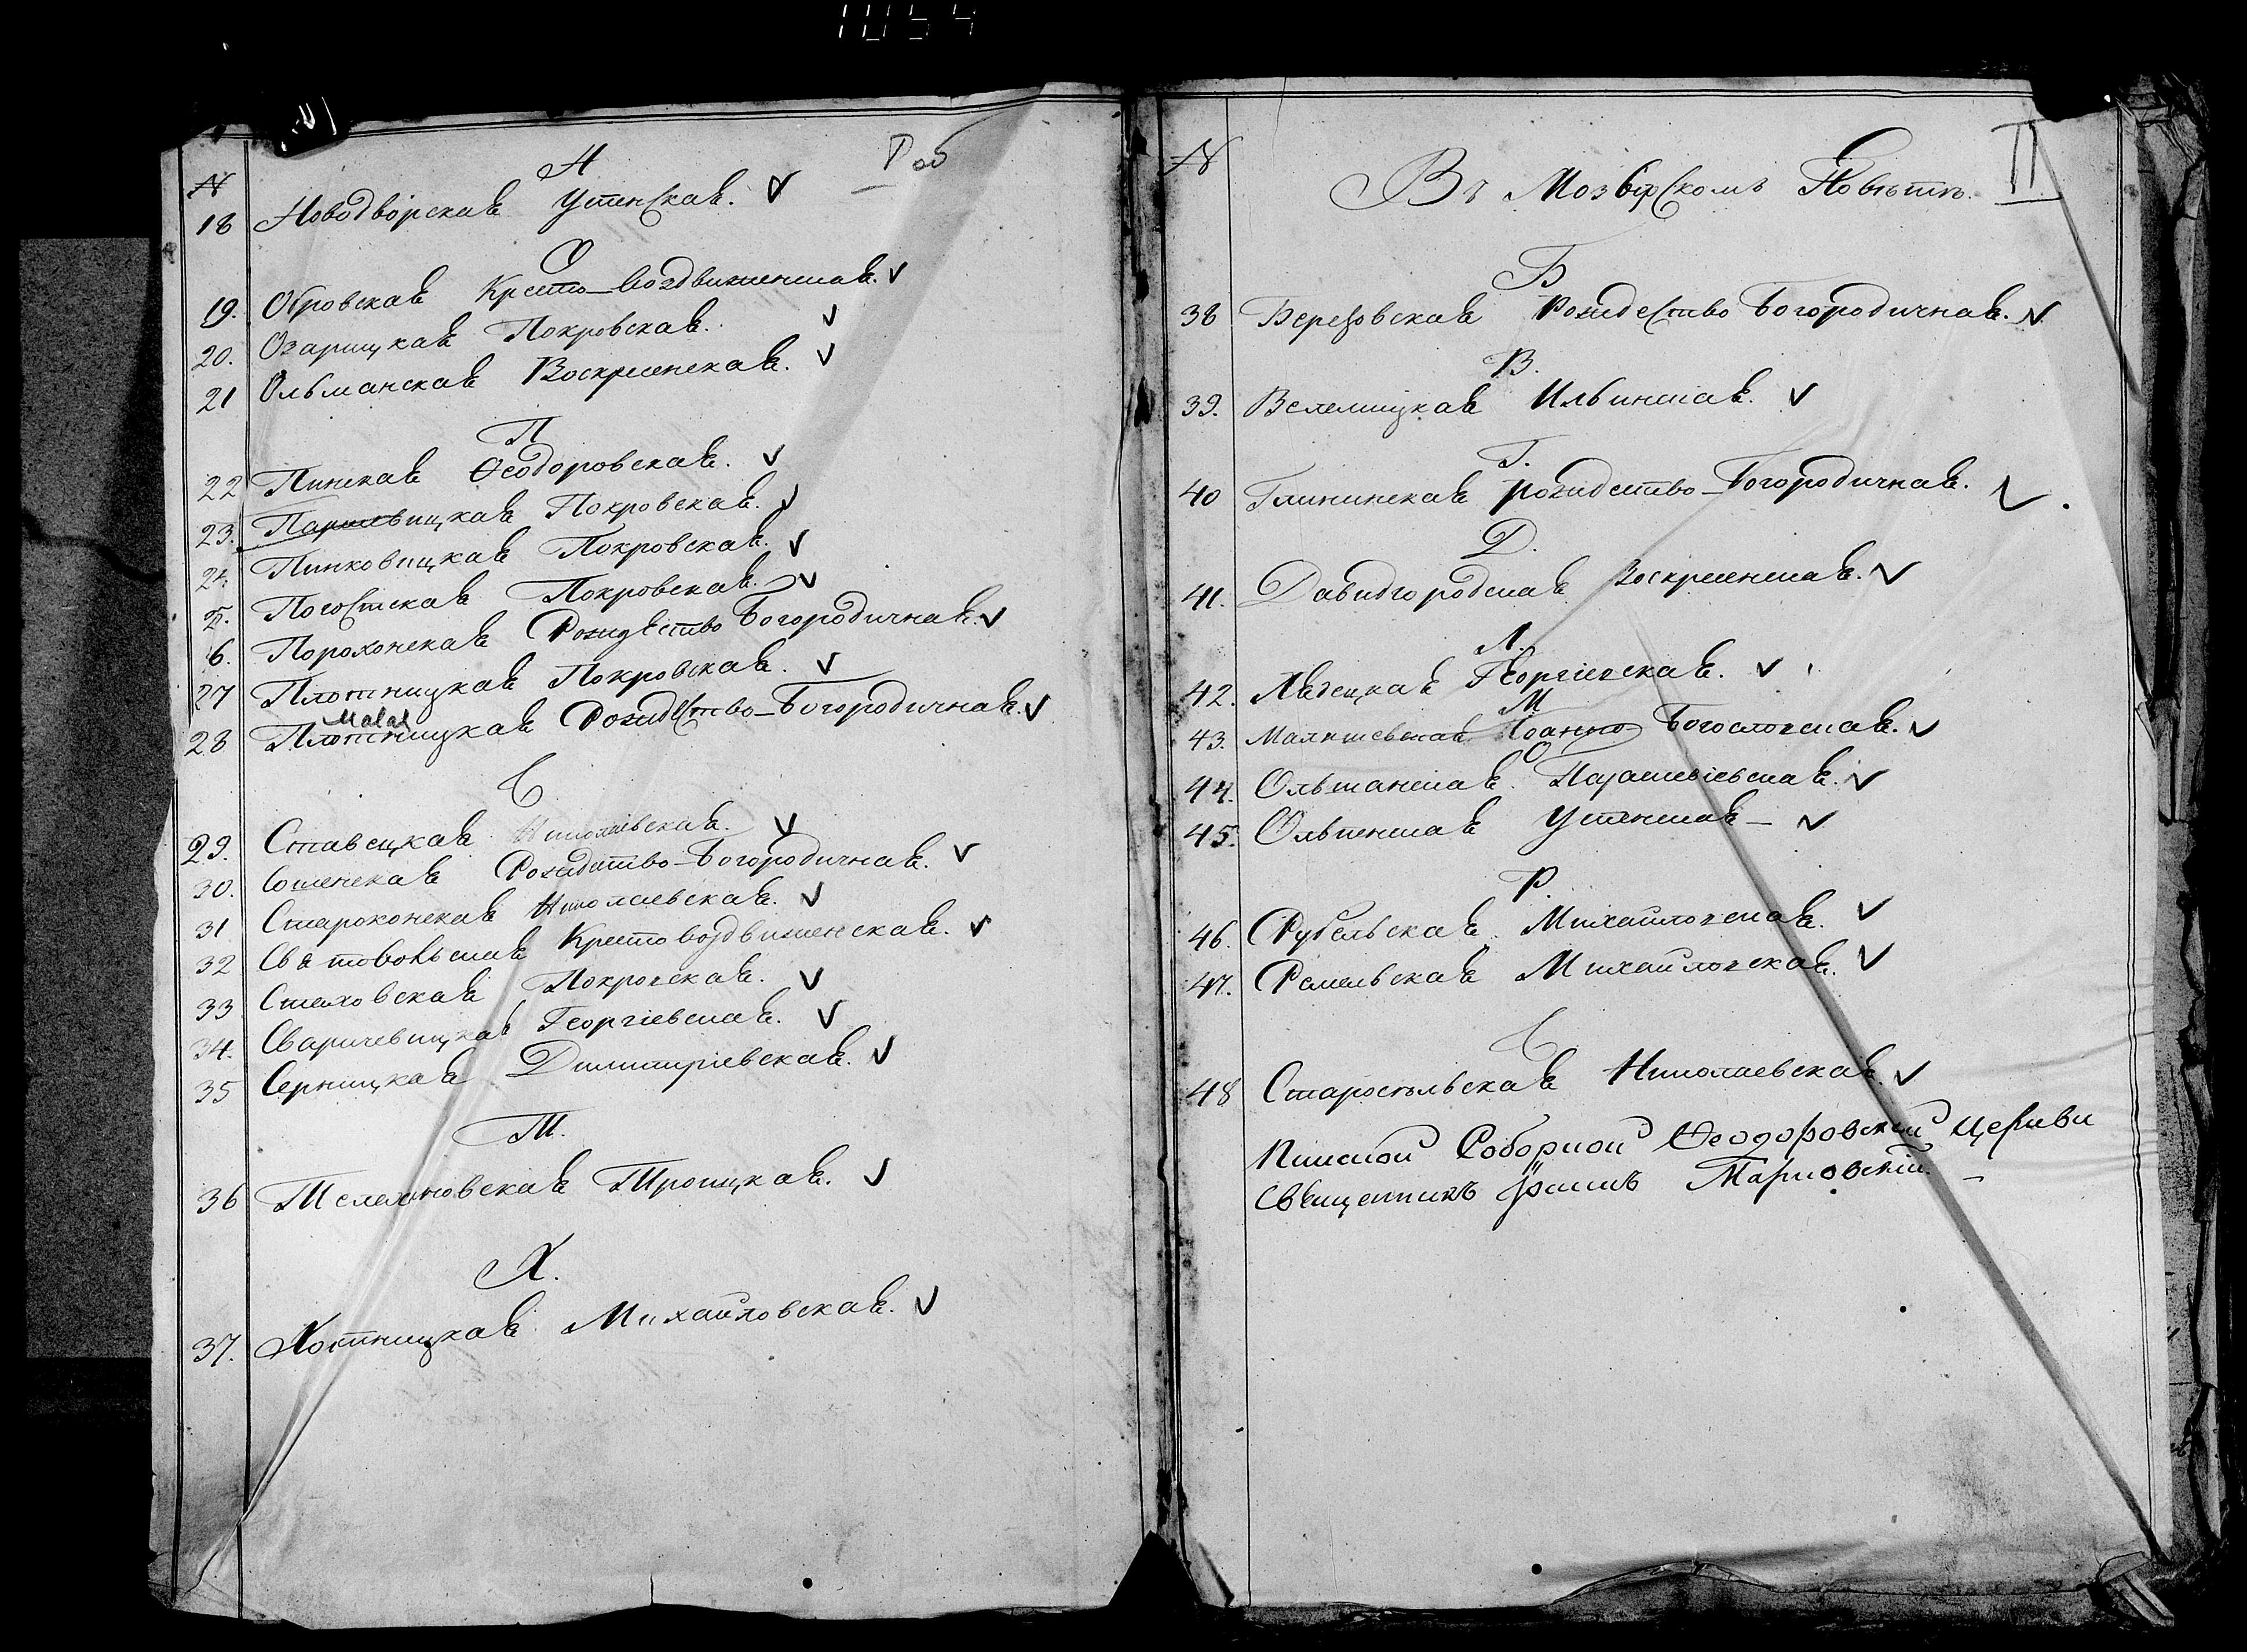 1054
№
Н
18 Новодворская Успенская.
О
19. Обровская Кресто-Воздвиженская.
20. Озарицкая Покровская.
21 Ольманская Воскресенская.
П
22 Пинская Ѳеодоровская.
23. Покровская.
24. Пинковицкая Покровская.
25. Погостская Покровская.
6. Порохонская Рождество Богородичная.
27 Плотницкая Покровская.
Малая
28 Плотницкая Рождество-Богородичная.
С
29. Ставецкая Николаевская.
30. Сошенская Рождество-Богородичная.
31 Староконская Николаевская.
32 Святовольская Крестовоздвиженская.
33 Стаховская Покровская.
34. Сваричевицкая Георгіевская.
35 Серницкая Димитріевская.
Т.
36 Телехановская Троицкая.
Х.
37. Хотыницкая Михайловская.
№
Въ Мозырскомъ Повѣтѣ.
II
Б
38 Березовская Рождество Богородичная.
В.
39. Велемицкая Ильинская.
Г.
40 Глининская рождество-Богородичная.
Д.
41. Давидгородская Воскресенская.
Л.
42. Георгіевская.
М
43. Іоанно Богословская.
О
44. Ольшанская Параскевіевская.
45. Ольпенская Успенская
Р.
46. Рубельская Михайловская.
47. Ремельская Михайловская.
С
48 Старосельская Николаевская.
Пинской Соборной Ѳеодоровской церкви
Священникъ Тарновскій.